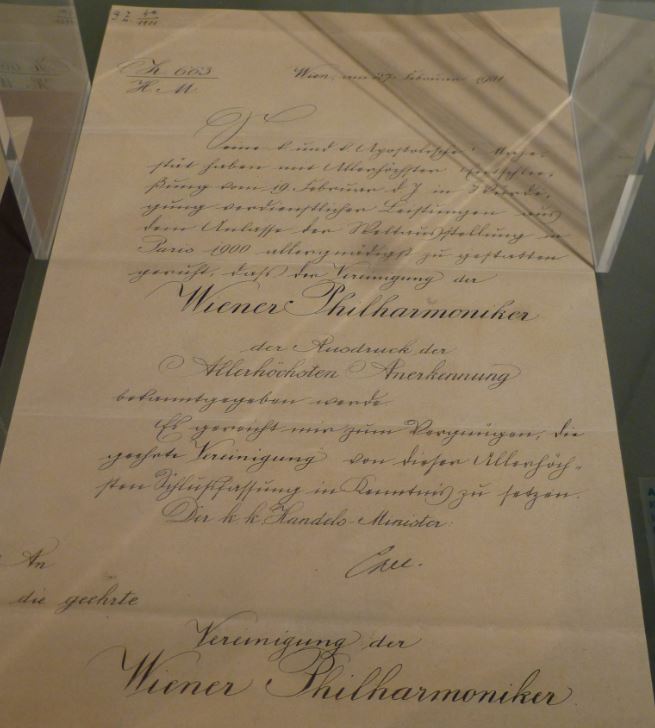 Z. 663
H. M.
Wien, am 27. Februar 1901
Seine k. und k. Apostolische Maje-
stät haben mit Allerhöchster Entschlie-
ßung vom 19. Februar d. J. in Würdi-
gung verdienstlicher Leistungen aus
dem Anlasse der Weltausstellung in
Paris 1900 allergnädigst zu gestatten
geruht, dass der Vereinigung der
Wiener Philharmoniker
der Ausdruck der
Allerhöchsten Anerkennung
bekanntgegeben werde.
Es gereicht mir zum Vergnügen, die
geehrte Vereinigung von dieser Allerhöch-
sten Schlußfassung in Kenntnis zu setzen.
Der k. k. Handels-Minister:
An
die geehrte
Vereinigung der
Wiener Philharmoniker.